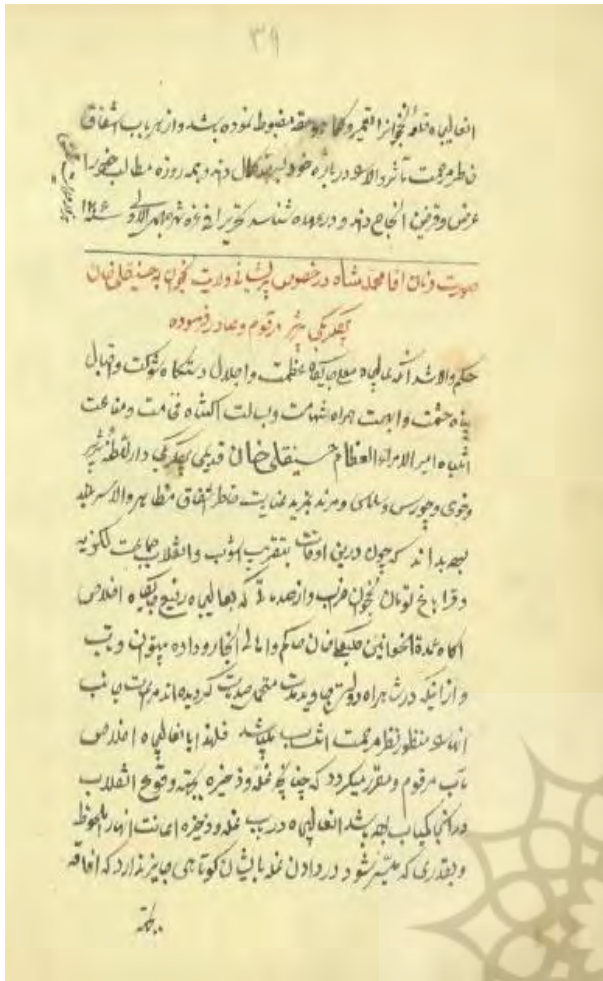 ۳۹
انعالیجاه قلعه نخجوانرا تعمیر و کما هو حقه مضبوط نموده باشد و از هر باب اشفاق
خاطر مرحمت تأثر والا درباره خود بسرحد کمال دند و همه روزه مطالب خود را
عرض و قرین انجاح دند و در عهده شناسد تحریراً فی غره شهر جمادی الاولی سنه
صورت فرمان اقا محمد شاه در خصوص پریشانی ولایت نخجوان به حسینقلی خان
بیگلربیگی مرقوم و صادر فرموده
حکم والا شد آنکه عالیجاه معلی جایگاه عظمت و اجلال دستگاه شوکت و اقبال
پناه حشمت و ابهت همراه شهامت و بسالت اکتناه فخامت و مناعت
انتباه امیر الامراء العظام حسینقلی خان قدیمی بیگلربیگی دار
و خوی و چورس و سلماس و مرند بمزید عنایت خاطر اشفاق مظاهر والا سربلند
بوده بداند که چون درین اوقات بتقریب آشوب و انقلاب جماعت لکزیه
و قراباغ تومان نخجوان خراب و از صدماتی که بعالیجاه رفیع جایگاه اخلاص
آگاه عمدة الخوانین کلبعلی خان حاکم و اهالی انجا رو داده
و از آنیکه در شاهراه دولت جاوید مدت متحمل صدمات گردیده اند مراعات جانب
آنها منظور نظر مرحمت انتساب میباشد فلهذا بانعالیجاه اخلاص
مآب مرقوم و مقرر میگردد که چنانچه غله و ذخیره بجهته وقوع انقلاب
در آنجا کمیاب بوده باشد انعالیجاه در باب غله و ذخیره اعانت آنها را ملحوظ
و بقدری که میسر شود در دادن غله بایشان کوتاهی جایز ندارد که افاقه